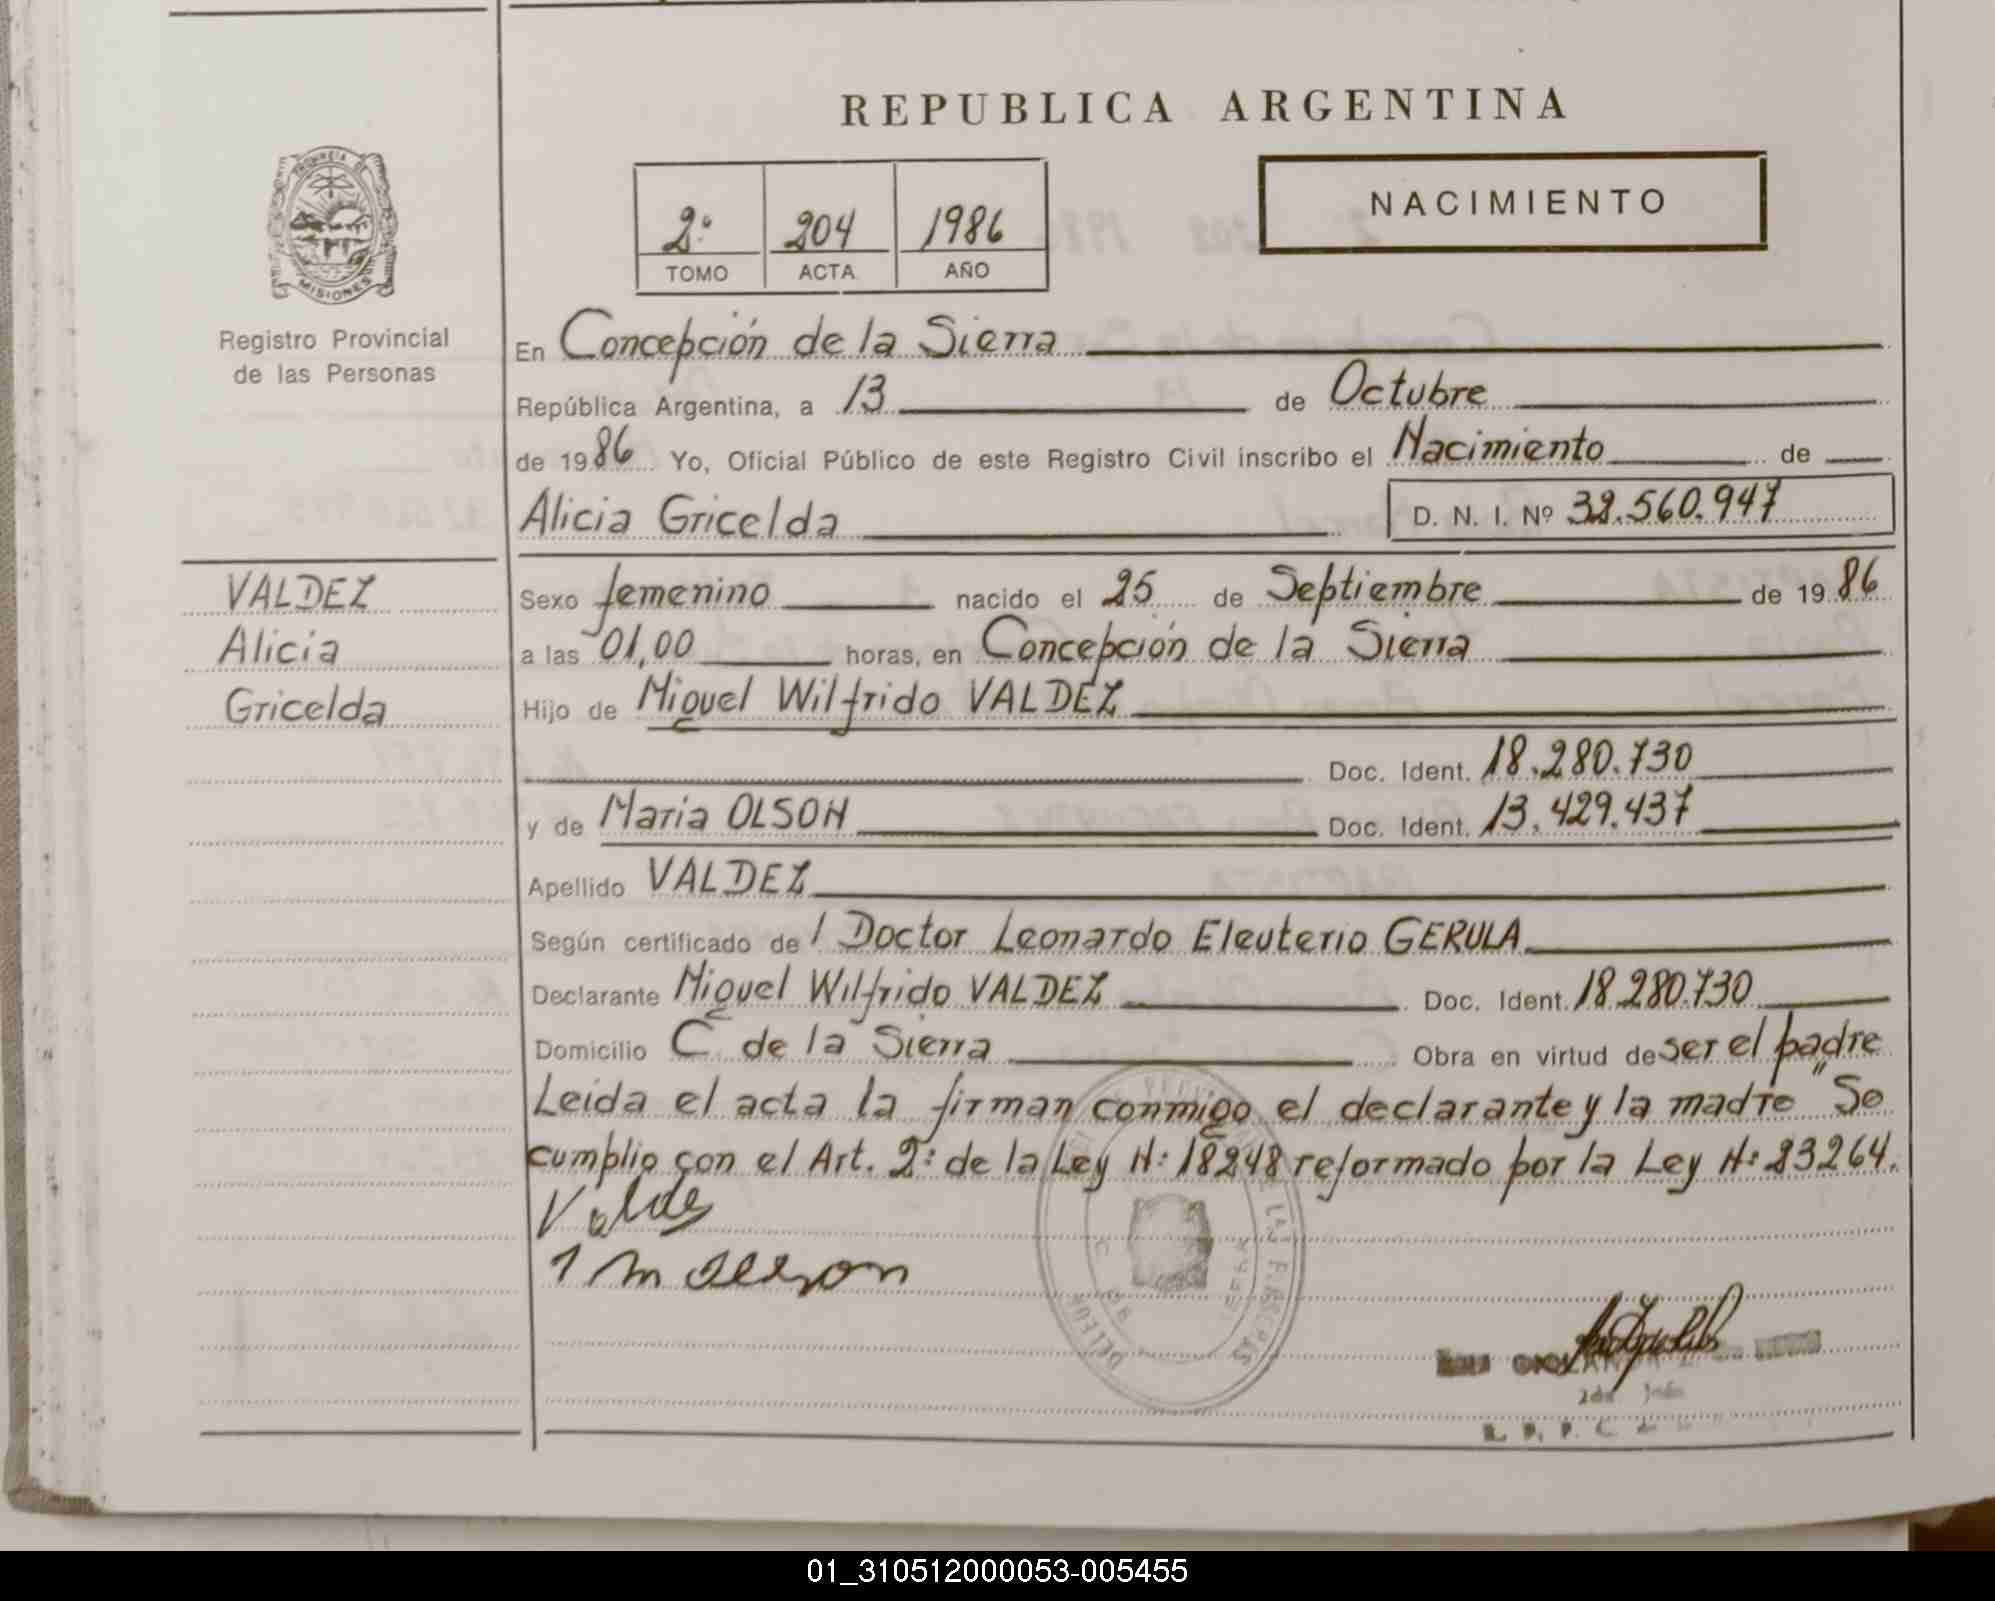 REPUBLICA ARGENTINA
PROVINCIA DE
MISIONES
Registro Provincial
de las Personas
2º 204 1986
TOMO ACTA AÑO
NACIMIENTO
En Concepción de la Sierra
República Argentina, a 13 de Octubre
de 1986 Yo, Oficial Público de este Registro Civil inscribo el Nacimiento de
Alicia Gricelda D. N. I. Nº 32.560.947
VALDEZ
Alicia
Gricelda
Sexo femenino nacido el 25 de Septiembre de 1986
a las 01,00 horas, en Concepción de la Sierra
Hijo de Miguel Wilfrido VALDEZ
Doc. Ident. 18.280.730
y de Maria OLSON Doc. Ident. 13.429.437
Apellido VALDEZ
Según certificado de l Doctor Leonardo Eleuterio GERULA
Declarante Miguel Wilfrido VALDEZ Doc. Ident. 18.280.730
Domicilio C. de la Sierra Obra en virtud de ser el padre
Leida el acta la firman conmigo el declarante y la madre "Se
cumplio con el Art. 2º de la Ley Nº 18248 reformado por la Ley Nº 23264.
Valdez
01_310512000053-005455